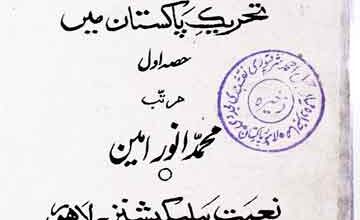 تحریکِ پاکستان میں
حصہ اول
مرتب
محمد انور امین
پبلیکیشنز ۔ لاہور
ذخیرہ